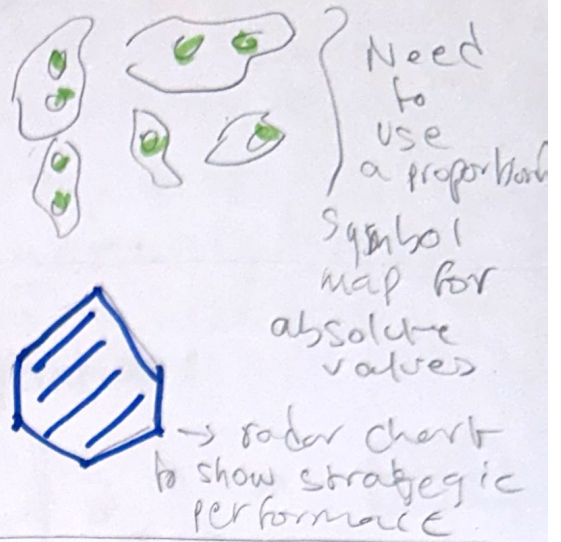 Need
to
use
a proportional
symbol
map for
absolute
values
→ radar chart
to show strategic
performace